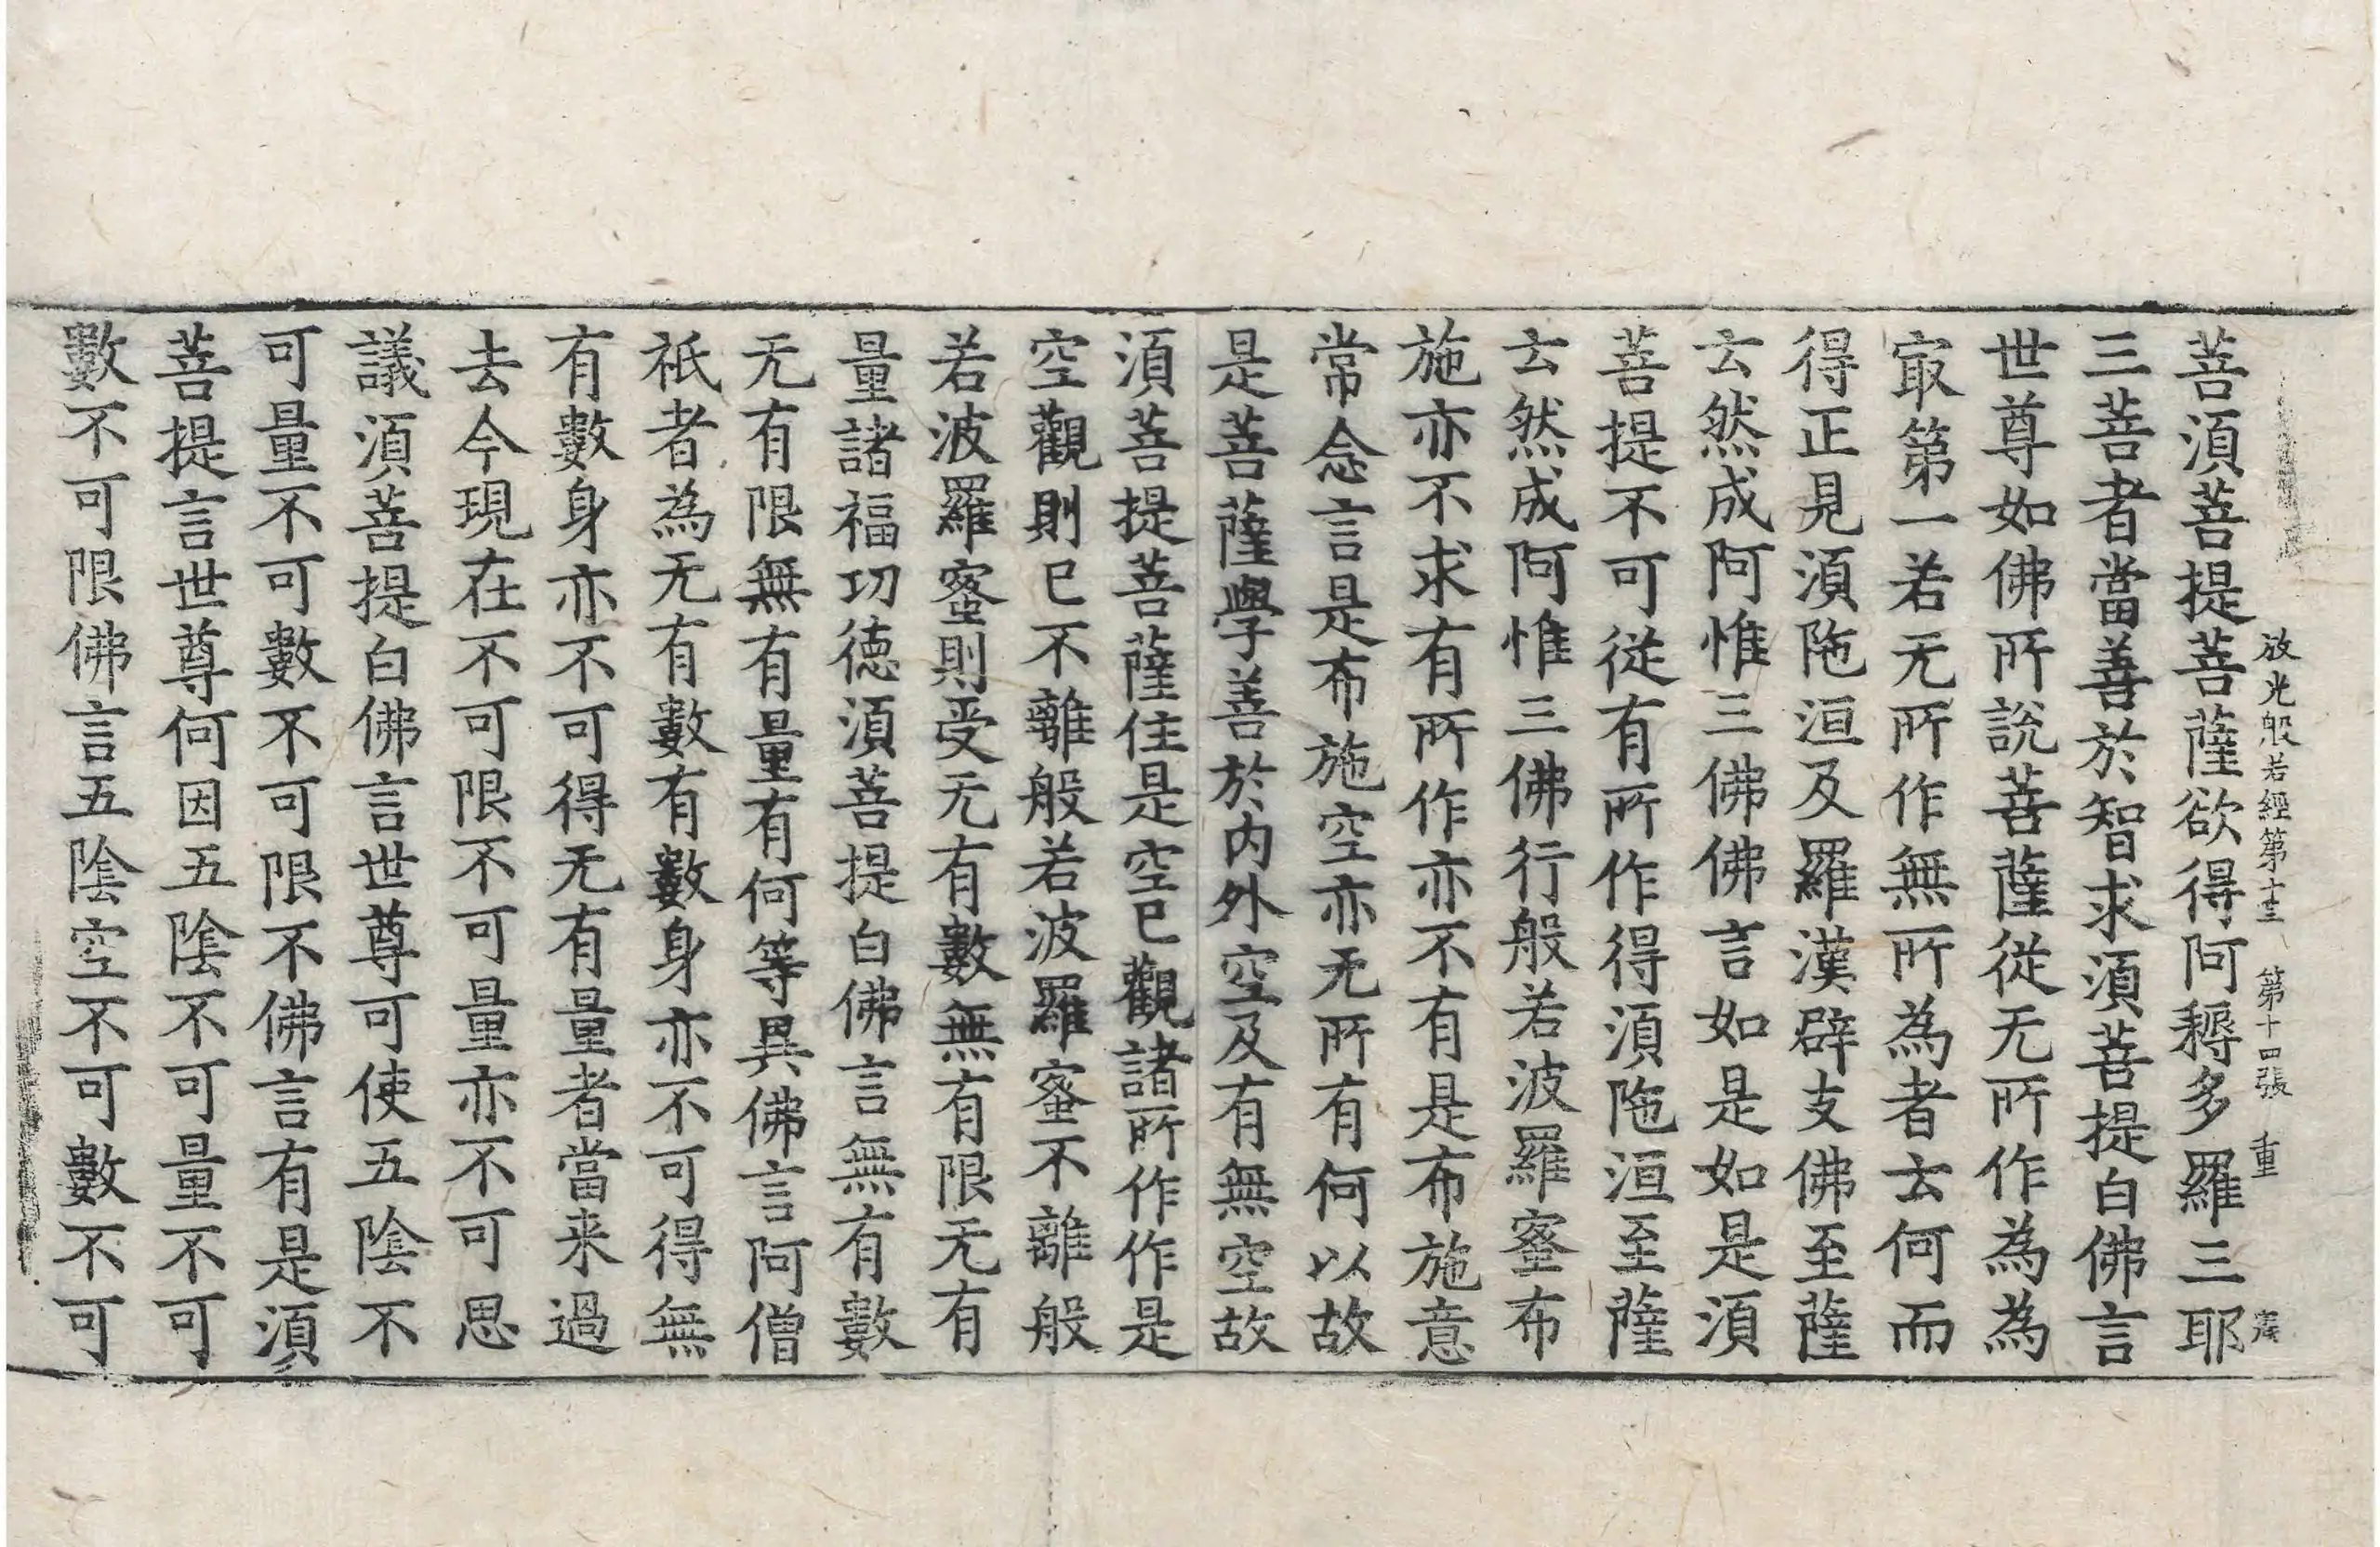 放光般若經第十三 第十四張 重
菩須菩提菩薩欲得阿耨多羅三耶
三菩者當善於智求須菩提白佛言
世尊如佛所說菩薩從无所作為為
冣第一若无所作無所為者云何而
得正見須陁洹及羅漢辟支佛至薩
云然成阿惟三佛佛言如是如是須
菩提不可從有所作得須陁洹至薩
云然成阿惟三佛行般若波羅蜜布
施亦不求有所作亦不有是布施意
常念言是布施空亦无所有何以故
是菩薩學善於內外空及有無空故
須菩提菩薩住是空已觀諸所作作是
空觀則已不離般若波羅蜜不離般
若波羅蜜則受无有數無有限无有
量諸福功德須菩提白佛言無有數
无有限無有量有何等異佛言阿僧
祇者為无有數有數身亦不可得無
有數身亦不可得无有量者當来過
去今現在不可限不可量亦不可思
議須菩提白佛言世尊可使五陰不
可量不可數不可限不佛言有是須
菩提言世尊何因五陰不可量不可
數不可限佛言五陰空不可數不可